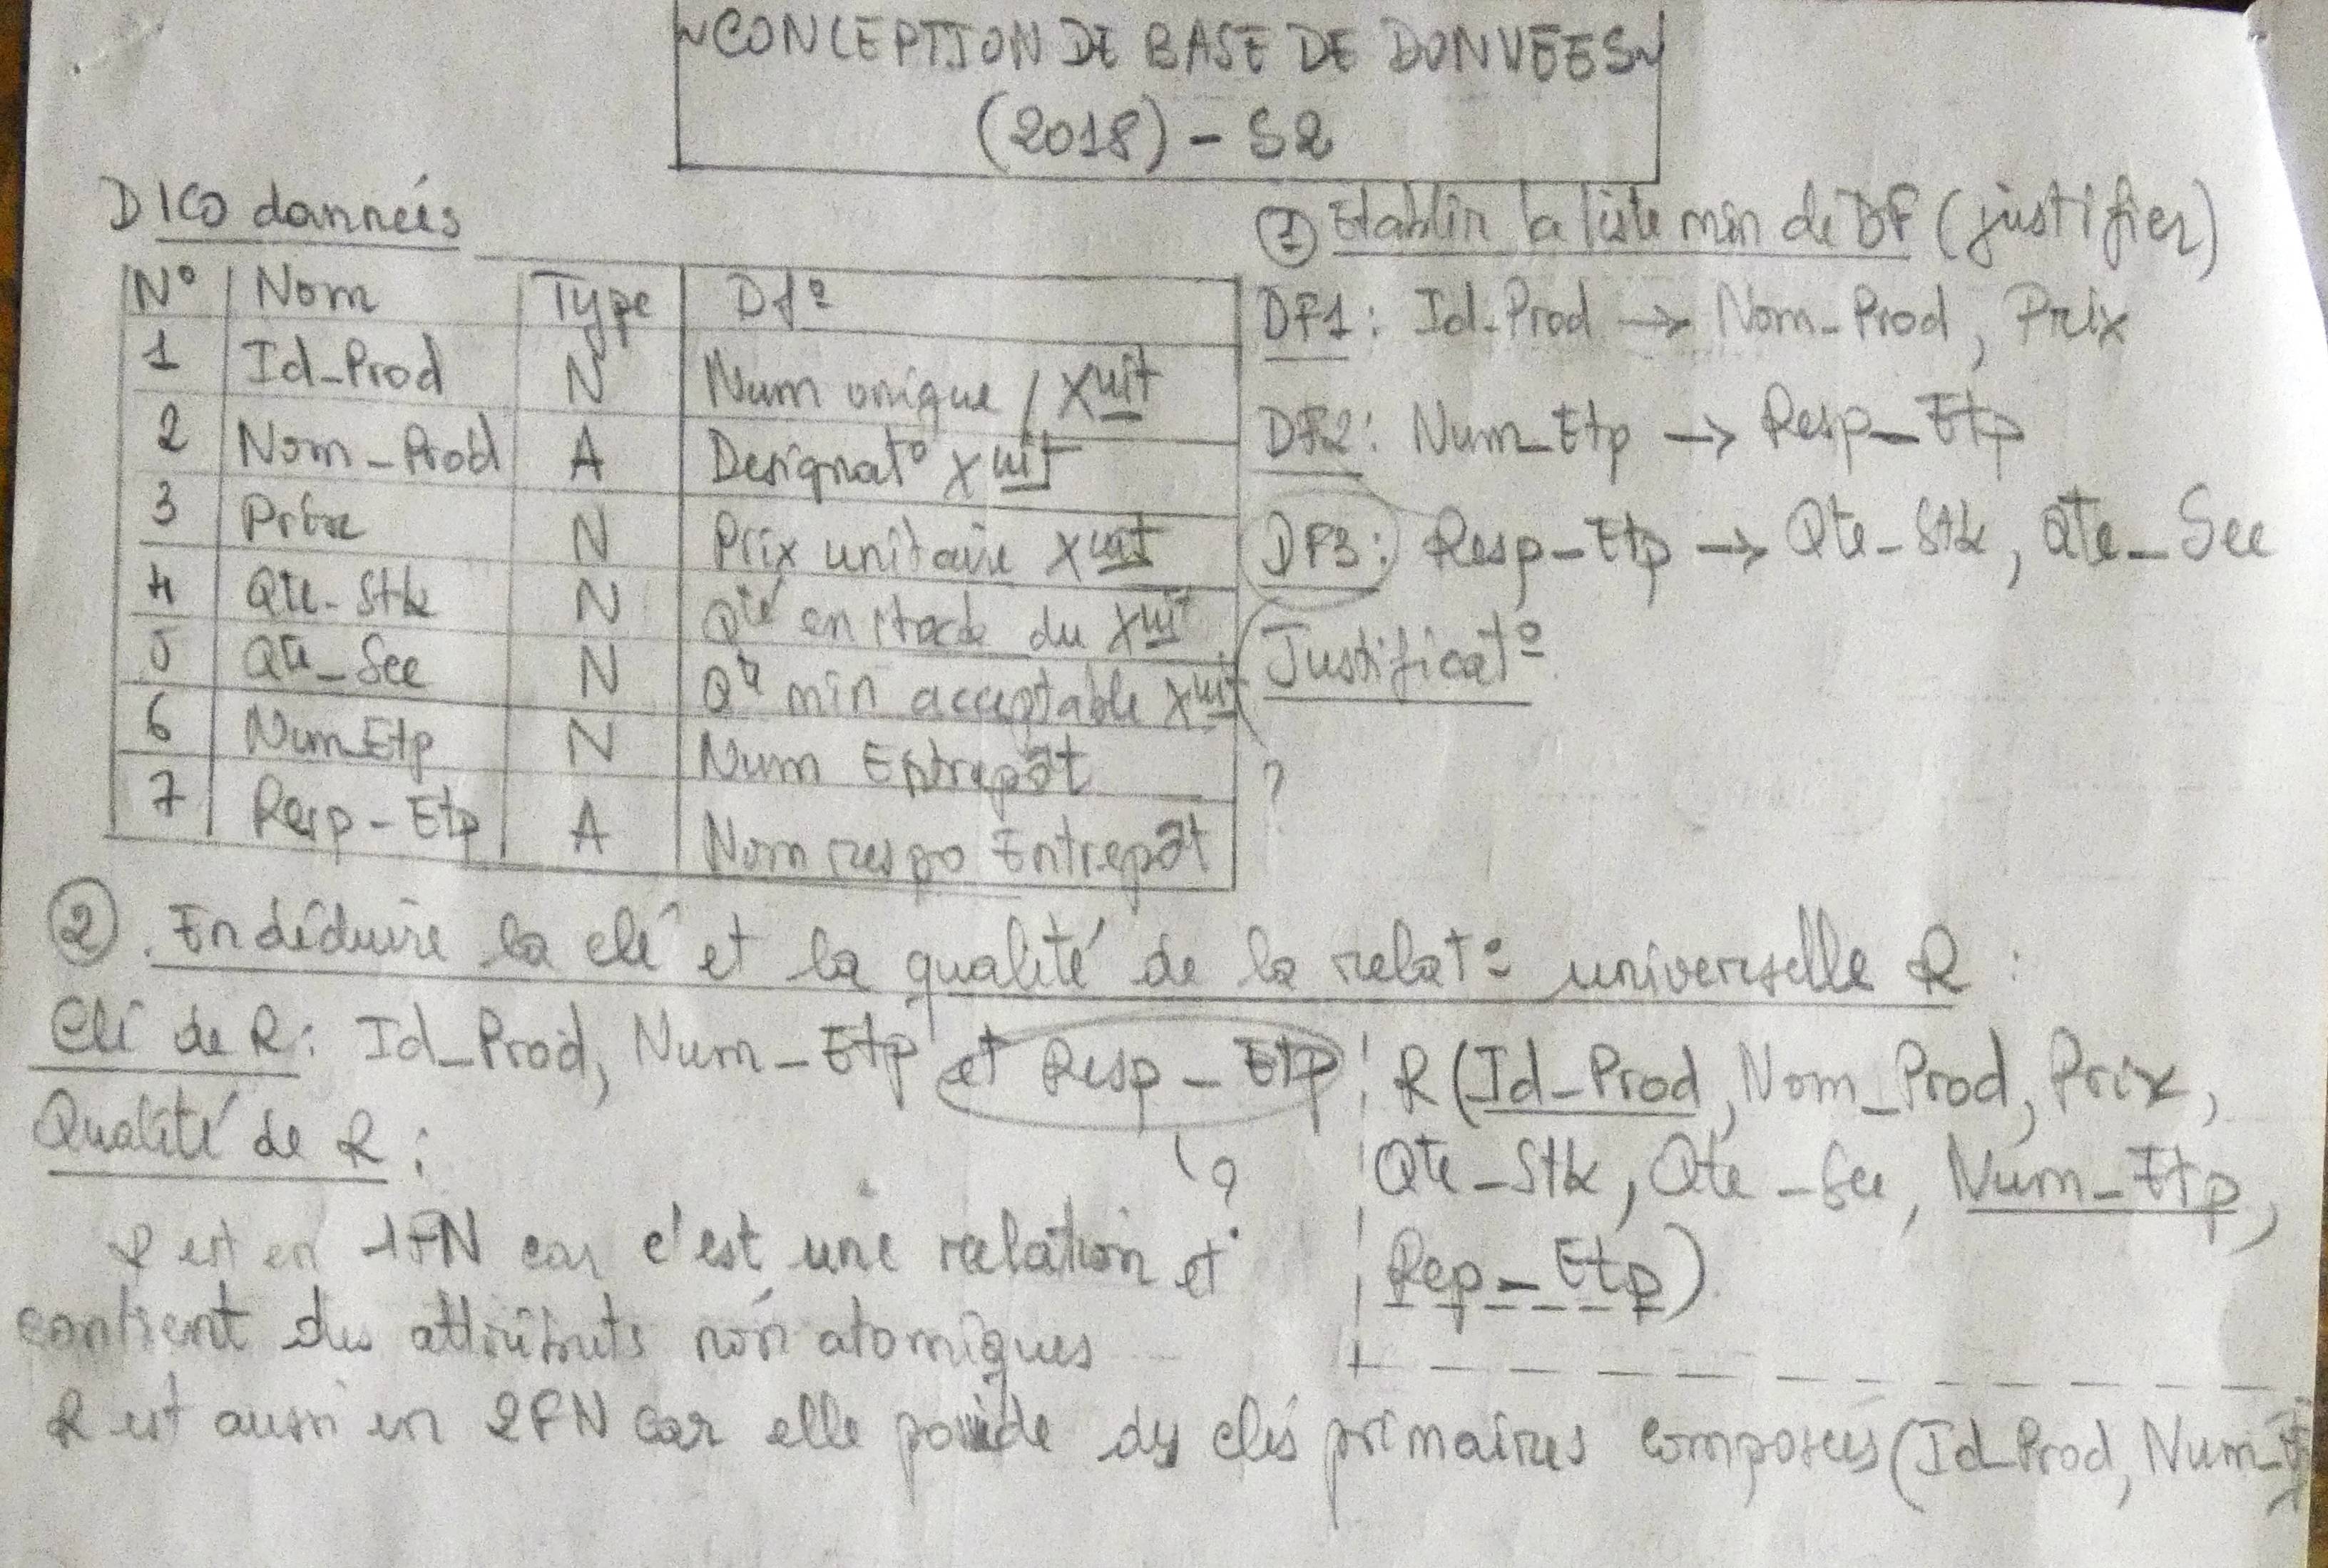 ~CONCEPTION DE BASE DE DONNÉES~
(2018) - S2
DICO données
N° Nom Type Df°
1 Id_Prod N Num unique / Xuit
2 Nom_Prod A Designat° Xuit
3 Prix N Prix unitaire Xuit
4 Qte-Stk N Qté en stock du Xuit
5 Qte_See N Qté min acceptable Xuit
6 Num_Etp N Num Entrepôt
7 Resp-Etp A Nom respo Entrepôt
① Etablir la liste min de DF (justifier)
DF1: Id-Prod → Nom_Prod, Prix
DF2: Num_Etp → Resp_Etp
DF3: Resp_Etp → Qte-Stk, Qte_See
Justificat°
?
② En déduire la clé et la qualité de la relat° universelle R :
Clé de R: Id_Prod, Num_Etp et Resp_Etp
?
R(Id_Prod, Nom_Prod, Prix,
Qte_Stk, Qte_See, Num_Etp,
Rep_Etp)
Qualité de R:
R est en 1FN car c'est une relation et
contient des attributs non atomiques
R est aussi en 2FN car elle posside des clés primaires composées (Id_Prod, Num_